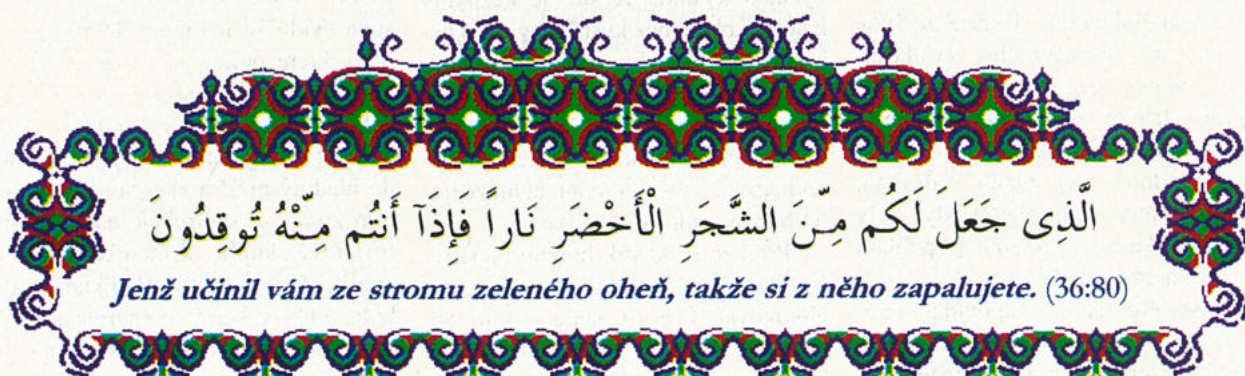 الَّذِى جَعَلَ لَكُم مِّنَ الشَّجَرَ الْأَخْضَرَ نَاراً فَإِذَآ أَنتُم مِّنْهُ تُوقِدُونَ
Jenž učinil vám ze stromu zeleného oheň, takže si z něho zapalujete. (36:80)